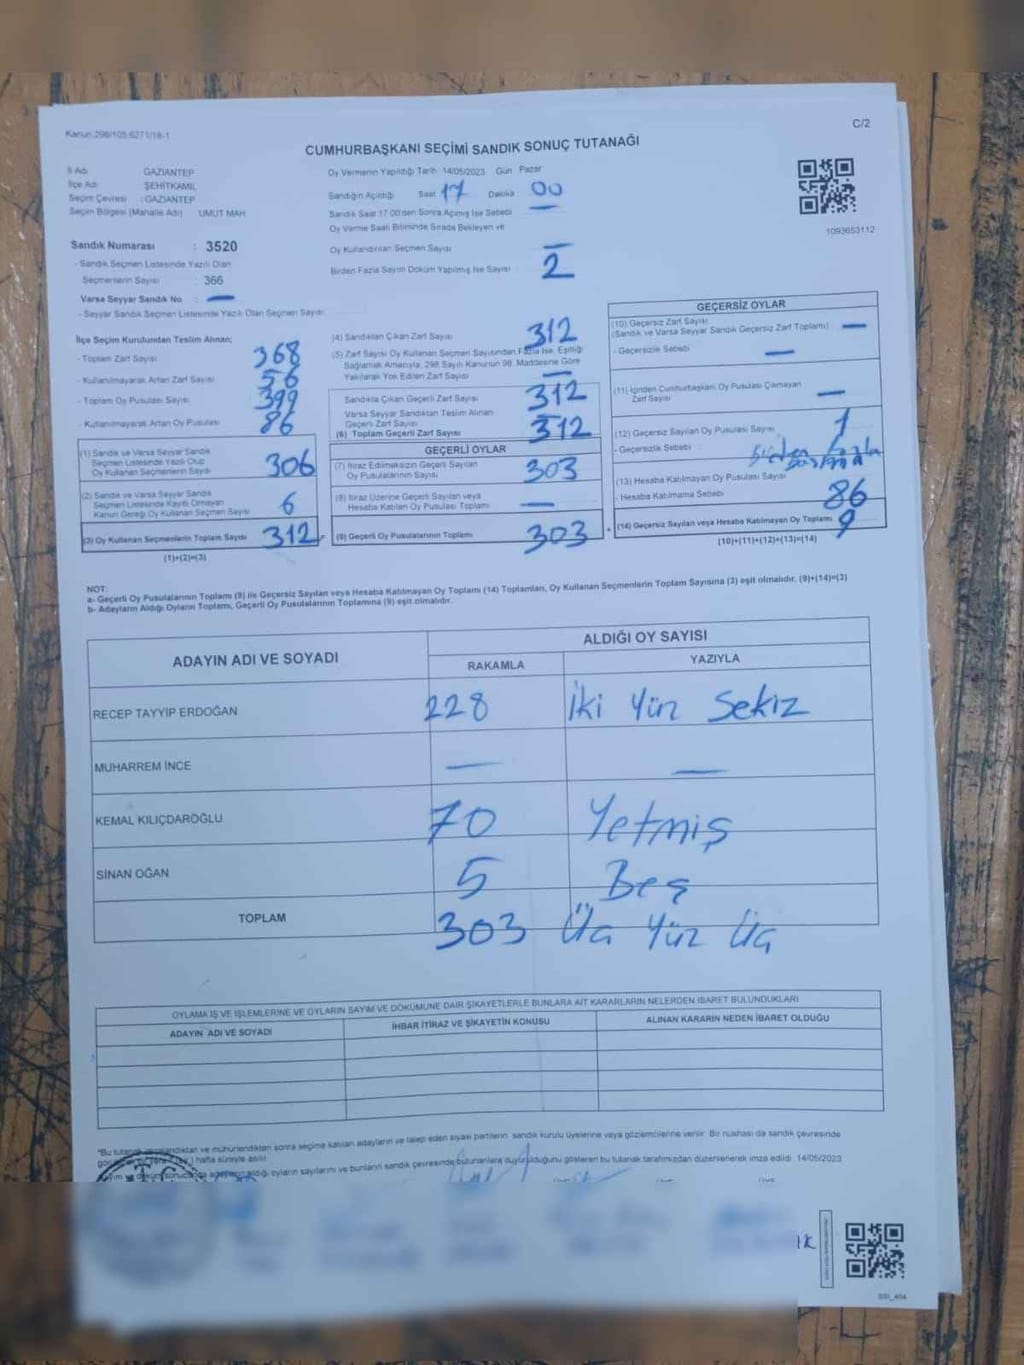 Kanun 298/105,6271/18-1
C/2
CUMHURBAŞKANI SEÇİMİ SANDIK SONUÇ TUTANAĞI
İl Adı GAZİANTEP
İlçe Adı ŞEHİTKAMİL
Seçim Çevresi : GAZİANTEP
Seçim Bölgesi (Mahalle Adı) UMUT MAH
Sandık Numarası : 3520
- Sandık Seçmen Listesinde Yazılı Olan
Seçmenlerin Sayısı : 366
Varsa Seyyar Sandık No : —
- Seyyar Sandık Seçmen Listesinde Yazılı Olan Seçmen Sayısı
Oy Vermenin Yapıldığı Tarih 14/05/2023 Gün Pazar
Sandığın Açıldığı Saat 17 Dakika 00
Sandık Saat 17:00'den Sonra Açılmış İse Sebebi —
Oy Verme Saati Bitiminde Sırada Bekleyen ve
Oy Kullandırılan Seçmen Sayısı —
Birden Fazla Sayım Döküm Yapılmış İse Sayısı 2
1093653112
İlçe Seçim Kurulundan Teslim Alınan;
- Toplam Zarf Sayısı 368
- Kullanılmayarak Artan Zarf Sayısı 56
- Toplam Oy Pusulası Sayısı 399
- Kullanılmayarak Artan Oy Pusulası 86
(1) Sandık ve Varsa Seyyar Sandık
Seçmen Listesinde Yazılı Olup
Oy Kullanan Seçmenlerin Sayısı 306
(2) Sandık ve Varsa Seyyar Sandık
Seçmen Listesinde Kayıtlı Olmayan
Kanun Gereği Oy Kullanan Seçmen Sayısı 6
(3) Oy Kullanan Seçmenlerin Toplam Sayısı 312
(1)+(2)=(3)
(4) Sandıktan Çıkan Zarf Sayısı 312
(5) Zarf Sayısı Oy Kullanan Seçmen Sayısından Fazla İse, Eşitliği
Sağlamak Amacıyla, 298 Sayılı Kanunun 98. Maddesine Göre
Yakılarak Yok Edilen Zarf Sayısı —
Sandıkta Çıkan Geçerli Zarf Sayısı 312
Varsa Seyyar Sandıktan Teslim Alınan
Geçerli Zarf Sayısı —
(6) Toplam Geçerli Zarf Sayısı 312
GEÇERLİ OYLAR
(7) İtiraz Edilmeksizin Geçerli Sayılan
Oy Pusulalarının Sayısı 303
(8) İtiraz Üzerine Geçerli Sayılan veya
Hesaba Katılan Oy Pusulası Toplamı —
(9) Geçerli Oy Pusulalarının Toplamı 303
GEÇERSİZ OYLAR
(10) Geçersiz Zarf Sayısı
(Sandık ve Varsa Seyyar Sandık Geçersiz Zarf Toplamı) —
- Geçersizlik Sebebi —
(11) İçinden Cumhurbaşkanı Oy Pusulası Çıkmayan
Zarf Sayısı —
(12) Geçersiz Sayılan Oy Pusulası Sayısı 1
- Geçersizlik Sebebi : Birden fazla
(13) Hesaba Katılmayan Oy Pusulası Sayısı
- Hesaba Katılmama Sebebi 86
(14) Geçersiz Sayılan veya Hesaba Katılmayan Oy Toplamı 9
(10)+(11)+(12)+(13)=(14)
NOT:
a- Geçerli Oy Pusulalarının Toplamı (9) ile Geçersiz Sayılan veya Hesaba Katılmayan Oy Toplamı (14) Toplamları, Oy Kullanan Seçmenlerin Toplam Sayısına (3) eşit olmalıdır. (9)+(14)=(3)
b- Adayların Aldığı Oyların Toplamı, Geçerli Oy Pusulalarının Toplamına (9) eşit olmalıdır.
ADAYIN ADI VE SOYADI ALDIĞI OY SAYISI
RAKAMLA YAZIYLA
RECEP TAYYİP ERDOĞAN 228 İki Yüz Sekiz
MUHARREM İNCE — —
KEMAL KILIÇDAROĞLU 70 Yetmiş
SİNAN OĞAN 5 Beş
TOPLAM 303 Üç Yüz Üç
OYLAMA İŞ VE İŞLEMLERİNE VE OYLARIN SAYIM VE DÖKÜMÜNE DAİR ŞİKAYETLERLE BUNLARA AİT KARARLARIN NELERDEN İBARET BULUNDUKLARI
ADAYIN ADI VE SOYADI İHBAR İTİRAZ VE ŞİKAYETİN KONUSU ALINAN KARARIN NEDEN İBARET OLDUĞU
*Bu tutanak imzalandıktan ve mühürlendikten sonra seçime katılan adayların ve talep eden siyasi partilerin sandık kurulu üyelerine veya gözlemcilerine verilir. Bir nüshası da sandık çevresinde
hafta süreyle asılır.
oyların sayılarını ve bunların sandık çevresinde bulunanlara duyurulduğunu gösteren bu tutanak tarafımızdan düzenlenerek imza edildi. 14/05/2023